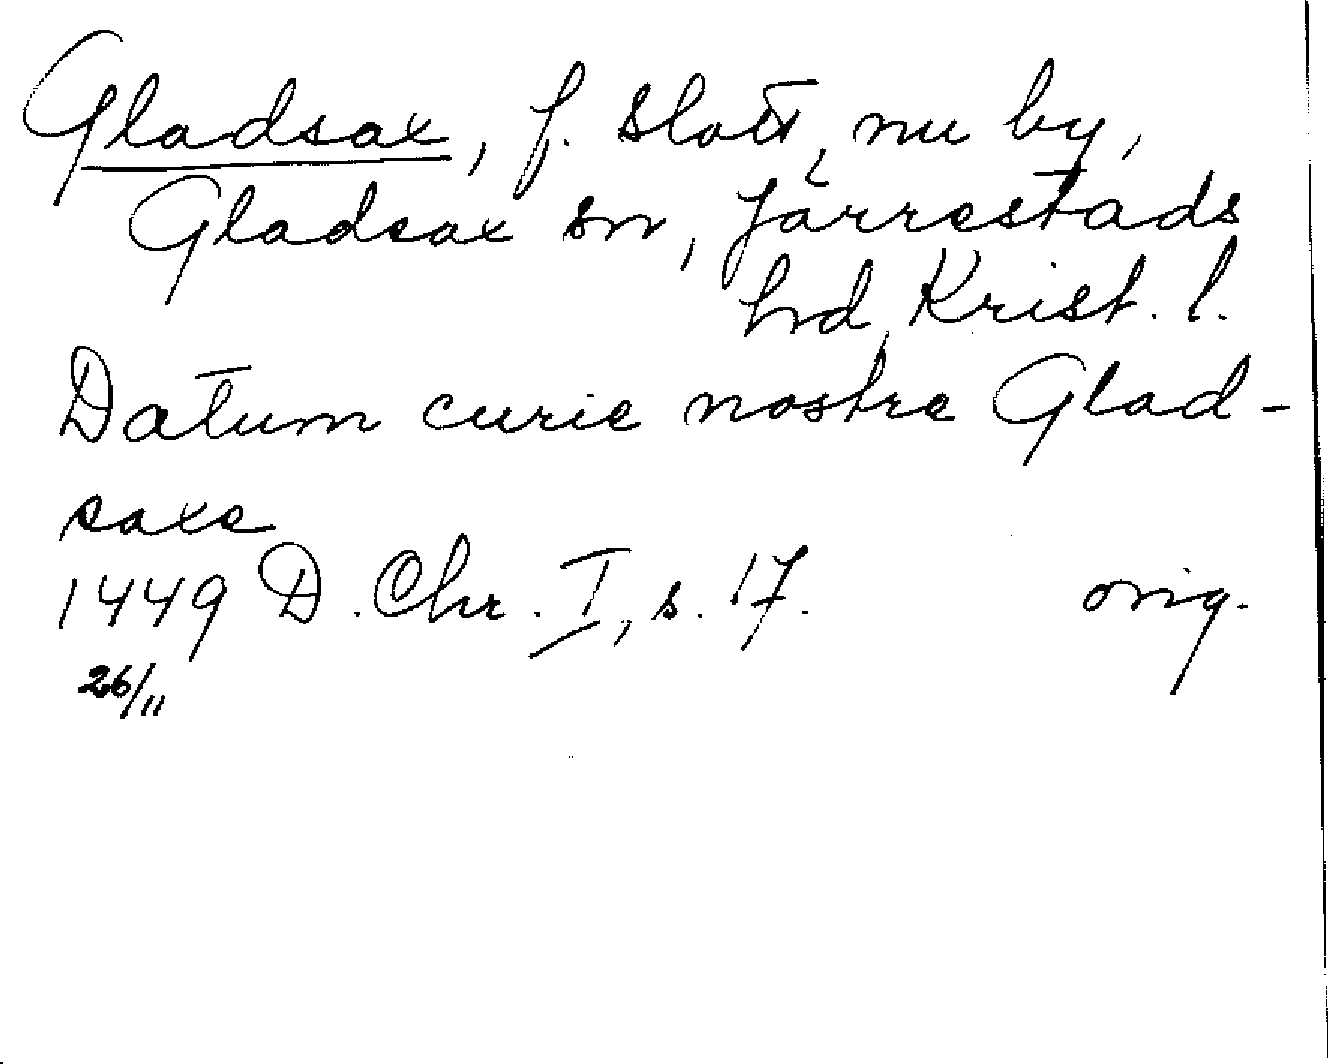 Gladsax, f. slott, nu by,
Gladsax sn, Järrestads
hrd, Krist. l.
Datum curie nostre Glad-
saxe
1449 D. Chr. I, s. 17. orig.
26/11